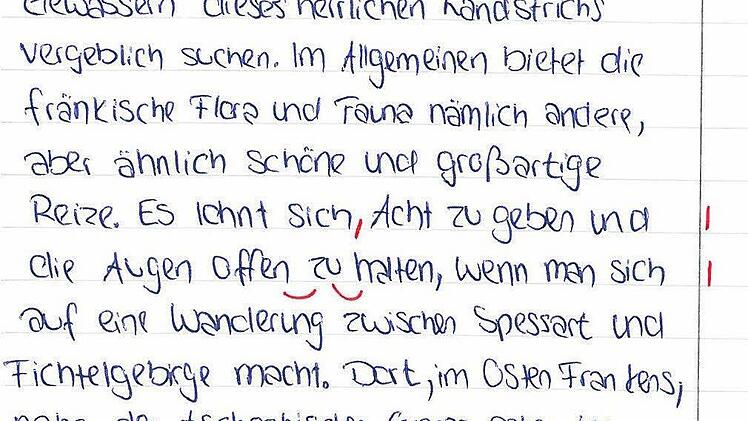 Gewässern dieses herrlichen Landstrichs
vergeblich suchen. Im Allgemeinen bietet die
fränkische Flora und Fauna nämlich andere,
aber ähnlich schöne und großartige
Reize. Es lohnt sich, Acht zu geben und
die Augen offen zu halten, wenn man sich
auf eine Wanderung zwischen Spessart und
Fichtelgebirge macht. Dort, im Osten Frankens,
nahe der tschechischen